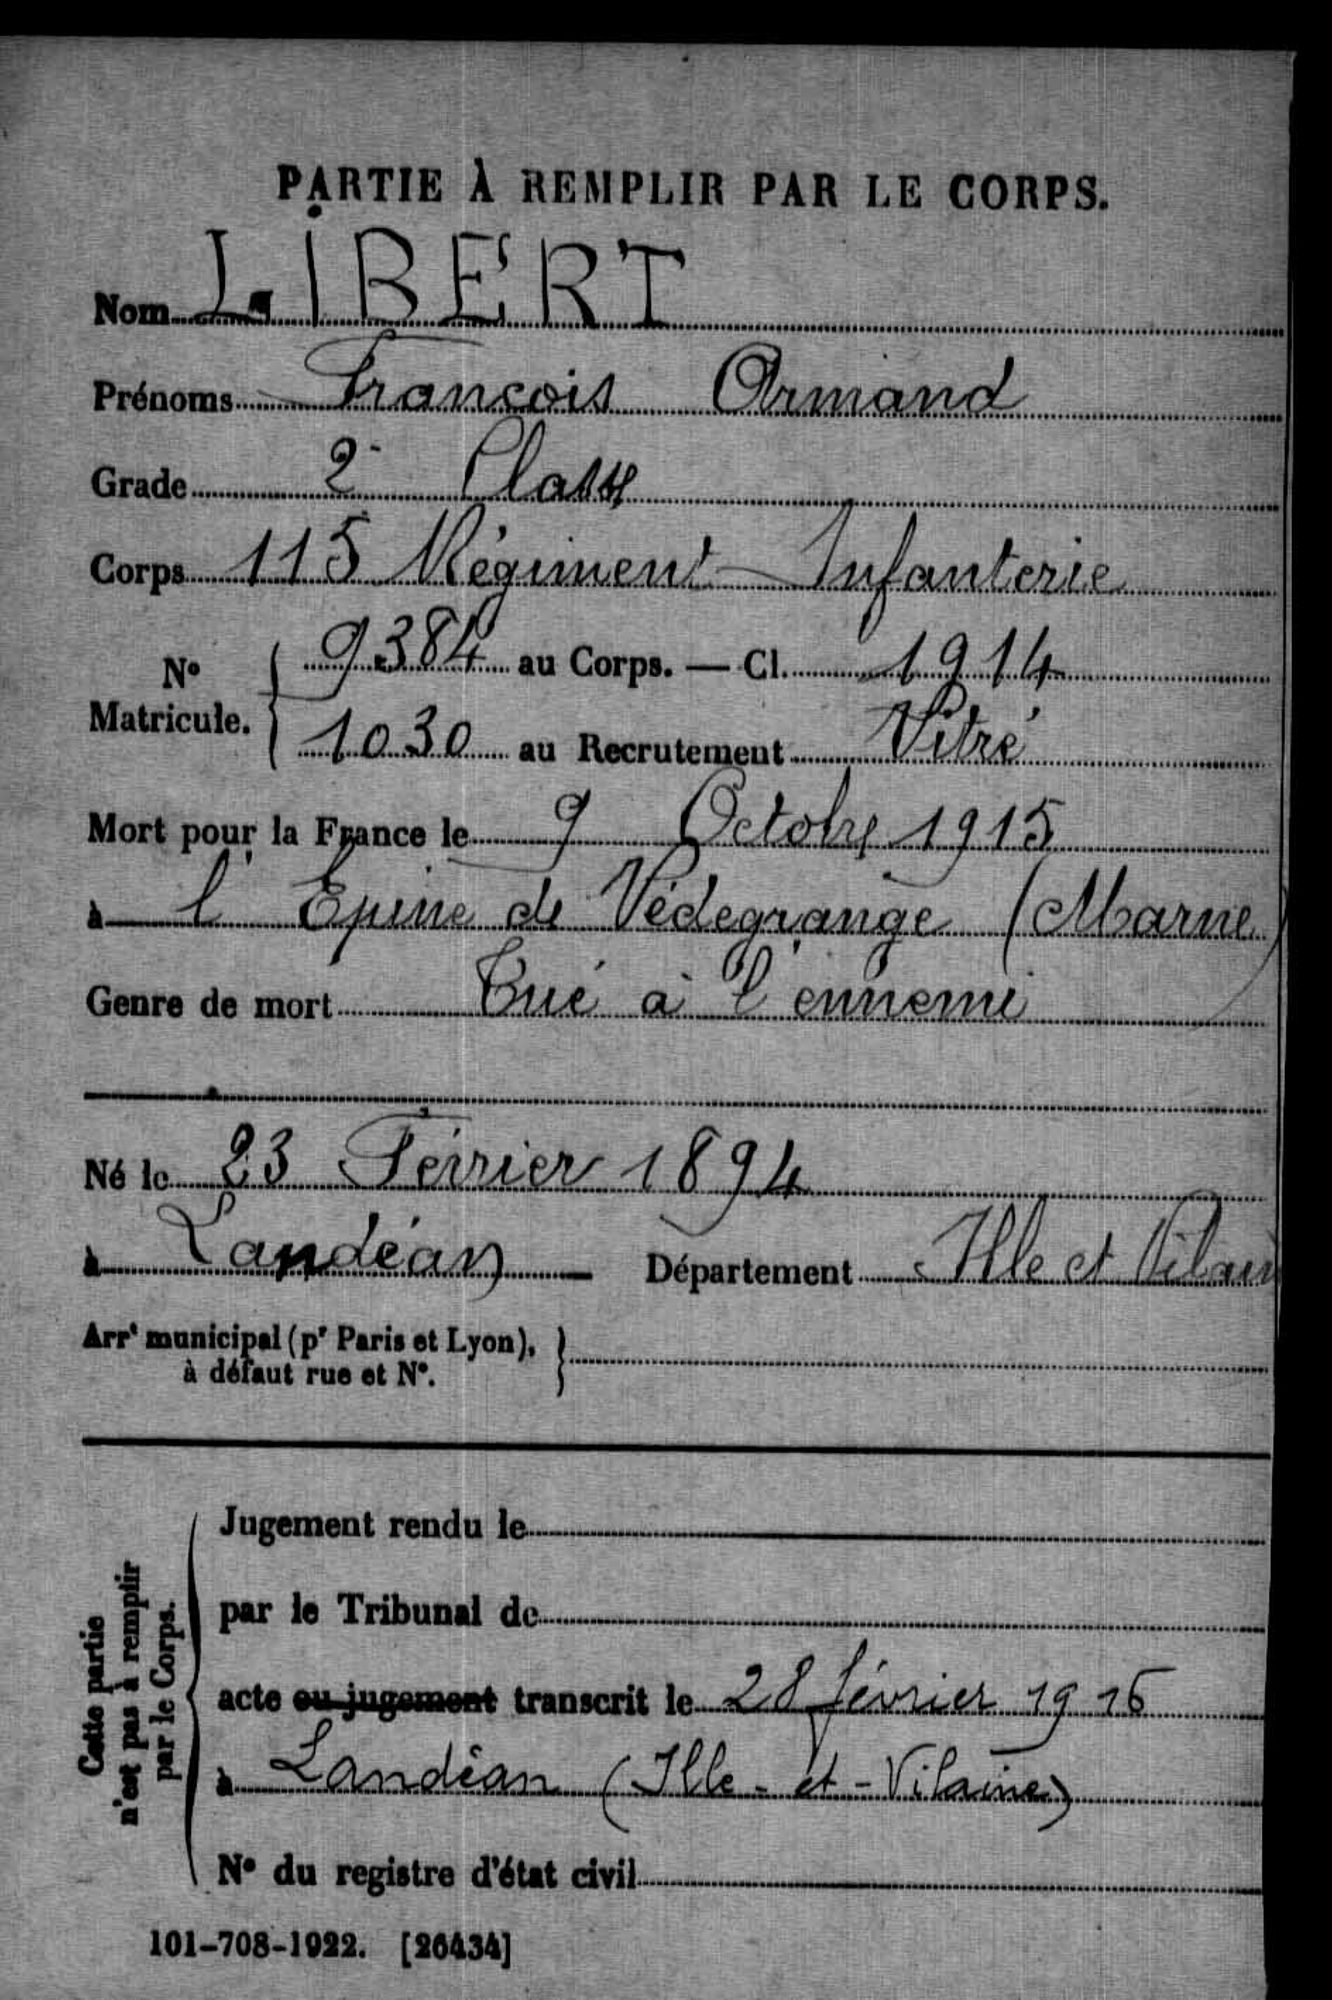 PARTIE À REMPLIR PAR LE CORPS.
Nom LIBERT
Prénoms François Armand
Grade 2e Classe
Corps 115 Régiment Infanterie
No Matricule. 9384 au Corps. — Cl. 1914
1030 au Recrutement Vitré
Mort pour la France le 9 Octobre 1915
à l'Epine de Védegrange (Marne)
Genre de mort Tué à l'ennemi
Né le 23 Février 1894
à Landéan Département Ille et Vilaine
Arrt municipal (pr Paris et Lyon),
à défaut rue et No.
Cette partie
n'est pas à remplir
par le Corps.
Jugement rendu le
par le Tribunal de
acte ou jugement transcrit le 28 février 1916
à Landéan (Ille-et-Vilaine)
No du registre d'état civil
101-708-1922. [26434]